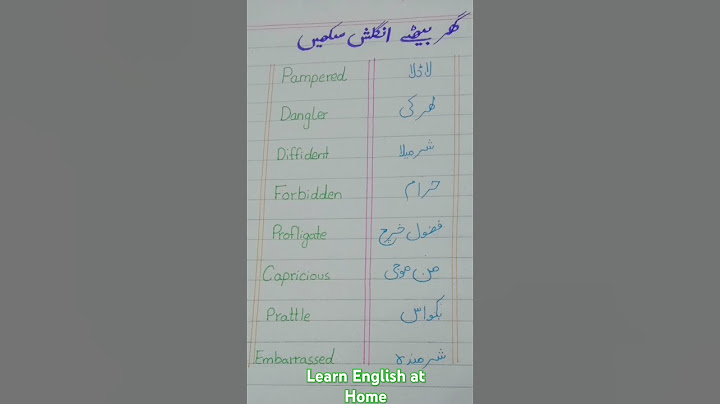 گھر بیٹھے انگلش سکھیں
Pampered لاڈلا
Dangler ٹھرکی
Diffident شرمیلا
Forbidden حرام
Profligate فضول خرچ
Capricious من موجی
Prattle بکواس
Embarrassed شرمندہ
Learn English at
Home